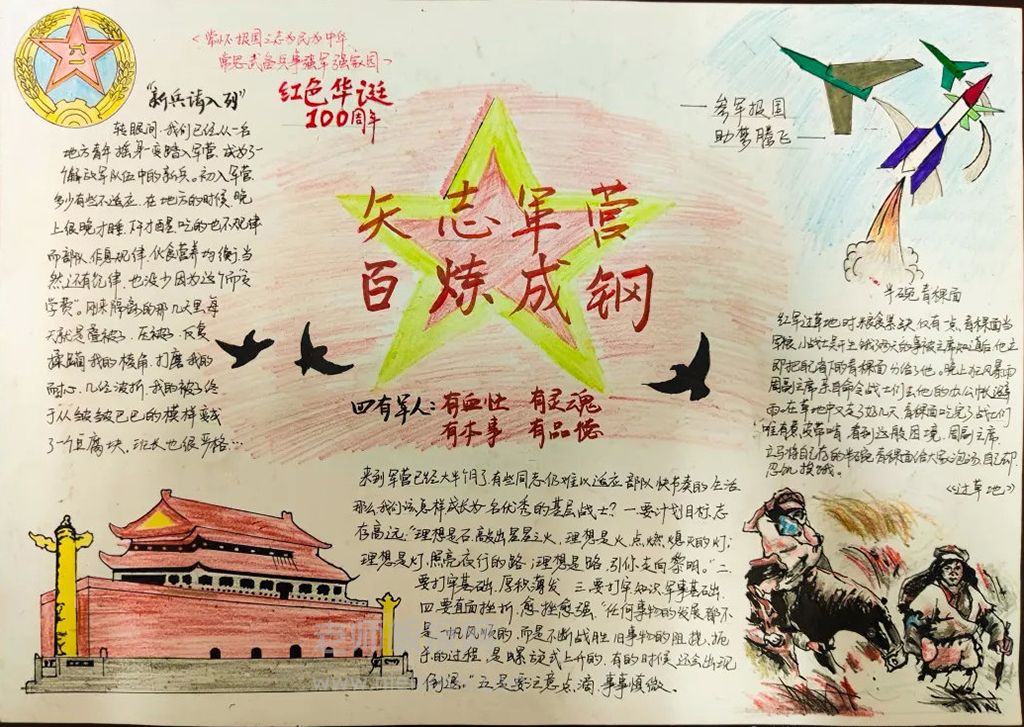 常怀报国之志为民为中华
常思武备兵事强军强家国
红色华诞
100周年
"新兵请入列"
转眼间,我们已经从一名
地方青年摇身一变踏入军营,成为了一
个解放军队伍中的新兵。初入军营
多少有些不适应,在地方的时候,晚
上很晚才睡,
而部队作息规律,伙食营养均衡,当
然还有纪律,也没少因为这个而"交
学费"。刚来那几天里,每
天就是叠被子,压被子,反复
我的棱角,打磨我的
耐心,几经波折,我的被子终
于从皱皱巴巴的模样变成
了一个豆腐块,班长也很严格…
矢志军营
百炼成钢
四有军人:有血性 有灵魂
有本事 有品德
参军报国
助梦腾飞
半碗青稞面
红军过草地时粮食紧缺,仅有一点青稞面当
即把配省下的青稞面分给了他。晚上狂风暴雨
周副主席亲自命令战士们去他的办公帐避
雨。在草地中又走了好几天,青稞面吃完了,战士们
唯有煮皮带啃,看到这般困境,周副主席
立马将自己存的半碗青稞面给大家泡汤,自己却
忍饥挨饿。
《过草地》
来到军营已经大半个月了,有些同志仍难以适应部队快节奏的生活
那么我们该怎样成长为一名优秀的基层战士?一要计划目标,志
存高远"理想是石,敲出星星之火,理想是火,点燃熄灭的灯;
理想是灯,照亮夜行的路;理想是路,引你走向黎明。"二
要打牢基础,厚积薄发 三要打牢知识军事基础.
四要直面挫折,愈挫愈强,"任何事物的发展都不
是一帆风顺的,而是不断战胜旧事物的阻挠、扼
杀的过程,是螺旋式上升的,有的时候还会出现
倒退。"五是要注意点滴,事事慎微。